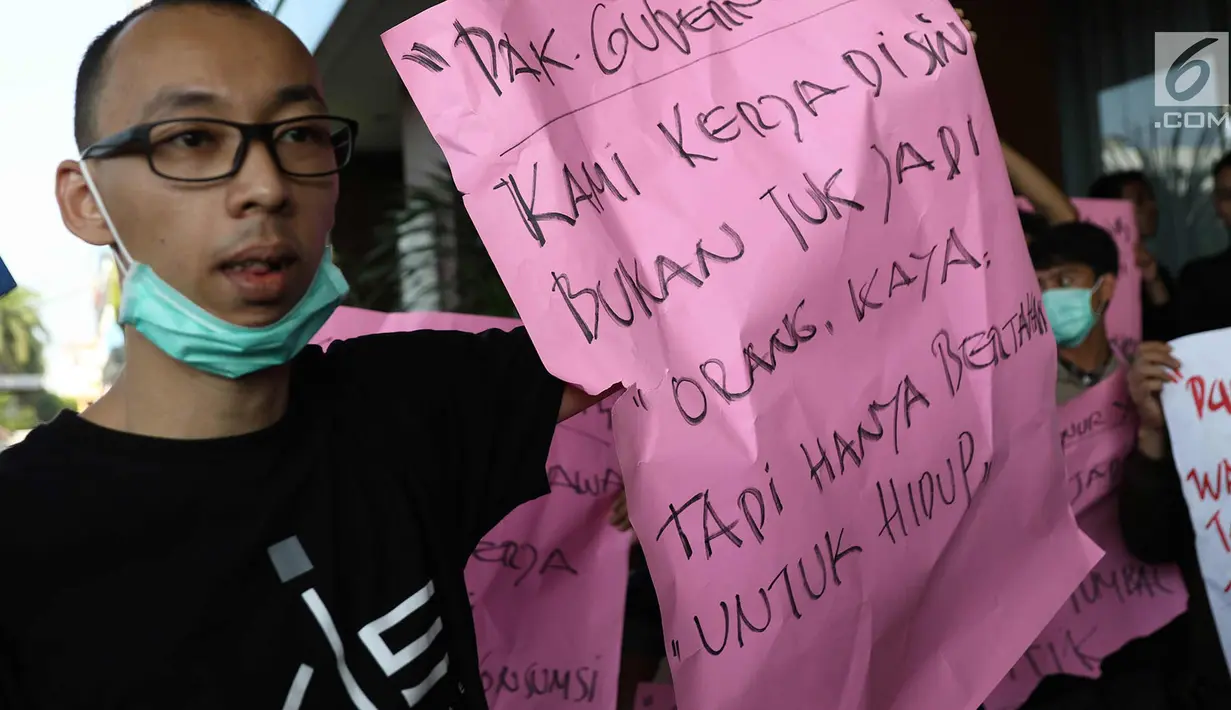 " PAK. GUBERN
KAMI KERJA DISIN
BUKAN TUK JADI
"ORANG. KAYA.
TAPI HANYA BERTAHAN
"UNTUK HIDUP,
6
.COM
AWA
ERJA
ONSUMSI
NUR
JAD
UMBAL
TIK